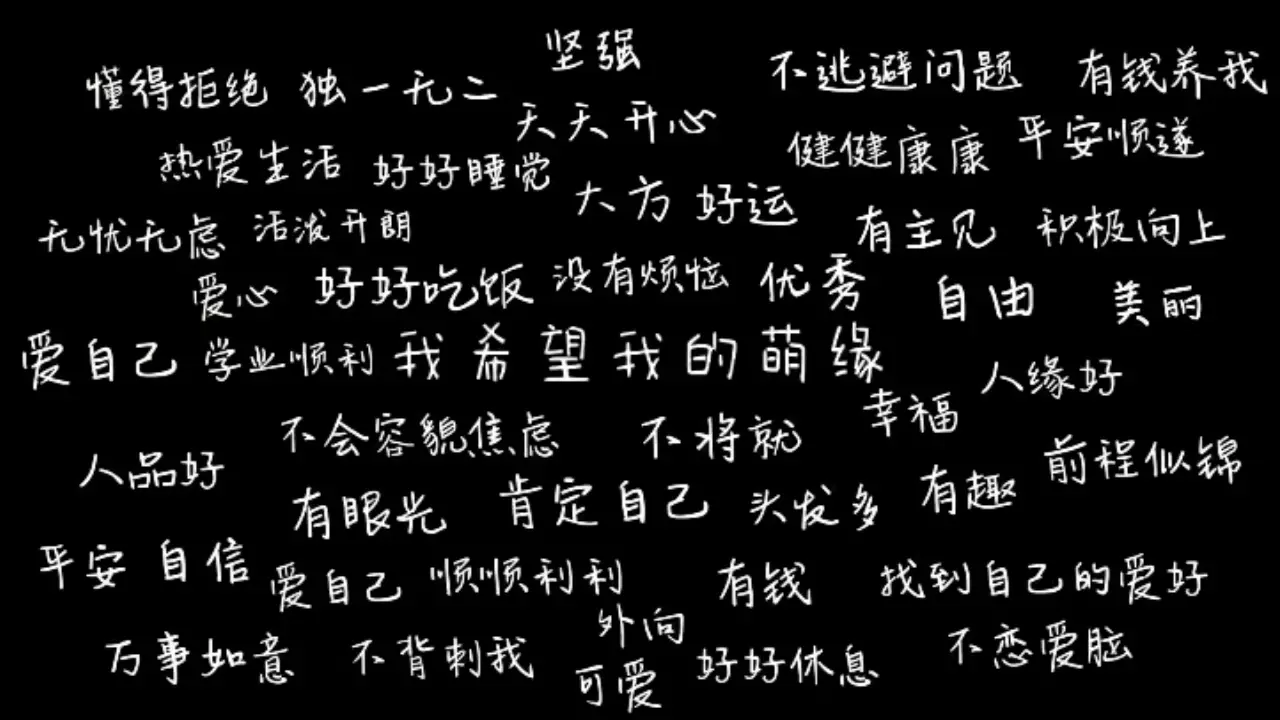 坚强
懂得拒绝 独一无二 不逃避问题 有钱养我
天天开心
热爱生活 好好睡觉 健健康康 平安顺遂
大方 好运
无忧无虑 活泼开朗 有主见 积极向上
爱心 好好吃饭 没有烦恼 优秀 自由 美丽
爱自己 学业顺利 我希望我的萌缘 人缘好
不会容貌焦虑 不将就 幸福
人品好 前程似锦
有眼光 肯定自己 头发多 有趣
平安 自信 爱自己 顺顺利利 有钱 找到自己的爱好
外向
万事如意 不背刺我 可爱 好好休息 不恋爱脑